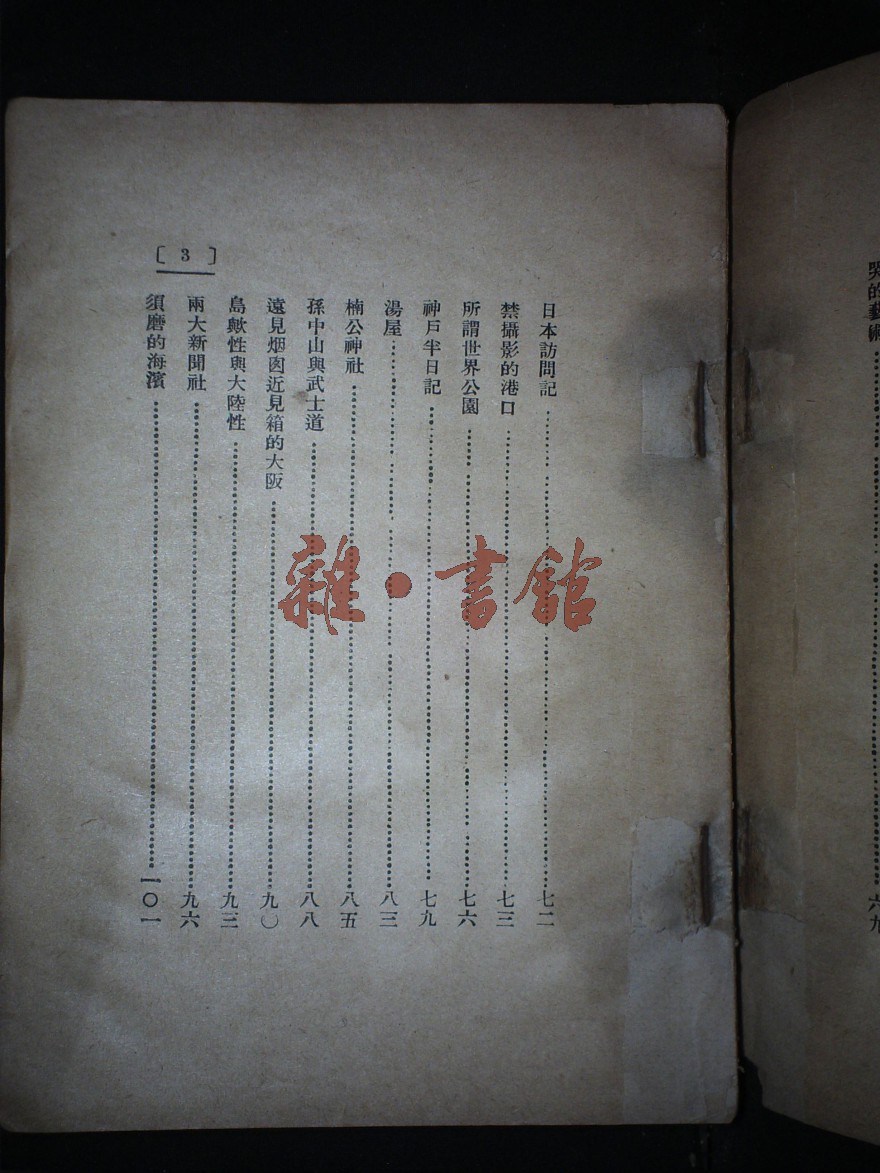 哭的藝術……六九
〔3〕
日本訪問記……七二
禁攝影的港口……七三
所謂世界公園……七六
神戶半日記……七九
湯屋……八三
楠公神社……八五
孫中山與武士道……八八
遠見烟囪近見箱的大阪……九〇
島獸性與大陸性……九三
兩大新聞社……九六
須磨的海濱……一〇一
雜·書館